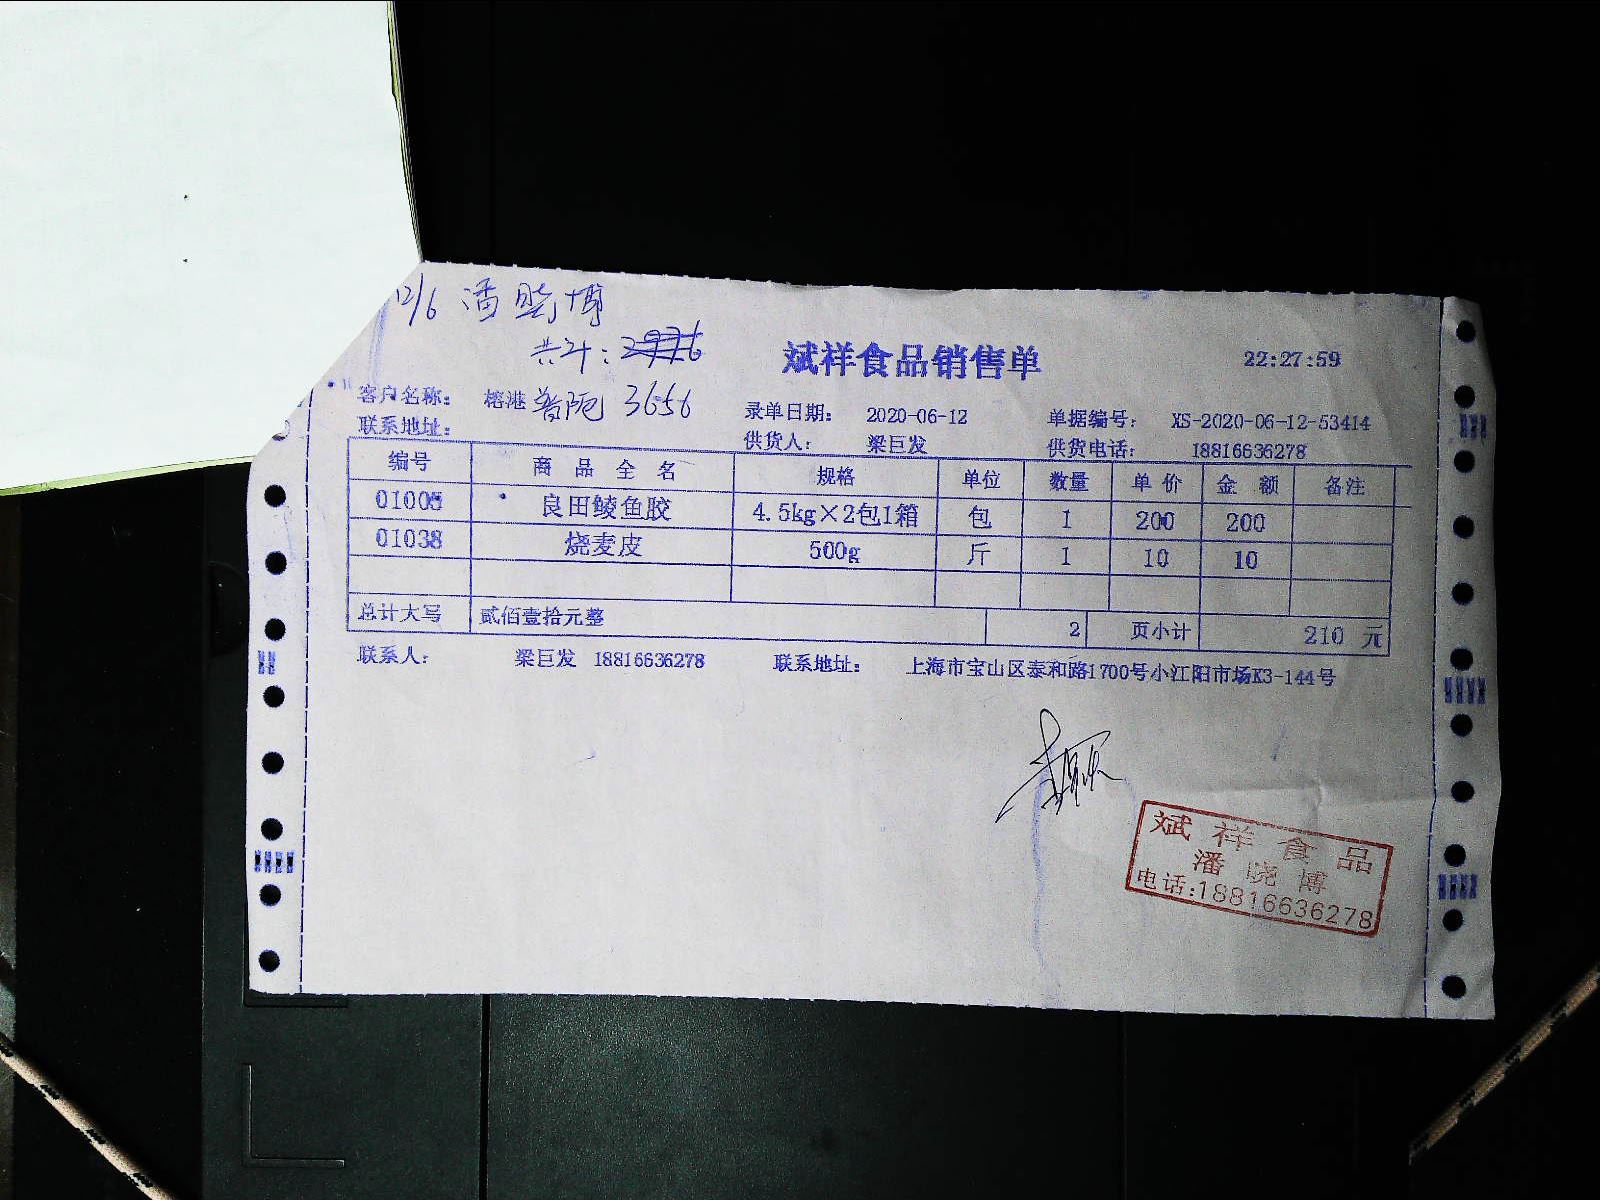 12/6 潘晓博
共计: 2976
斌祥食品销售单 22:27:59
客户名称: 榕港 普陀 3656 录单日期: 2020-06-12 单据编号: XS-2020-06-12-53414
联系地址: 供货人: 梁巨发 供货电话: 18816636278
编号 商品全名 规格 单位 数量 单价 金额 备注
01005 良田鲮鱼胶 4.5kg×2包1箱 包 1 200 200
01038 烧麦皮 500g 斤 1 10 10
总计大写 贰佰壹拾元整 2 页小计 210 元
联系人: 梁巨发 18816636278 联系地址: 上海市宝山区泰和路1700号小江阳市场K3-144号
斌祥食品
潘晓博
电话:18816636278